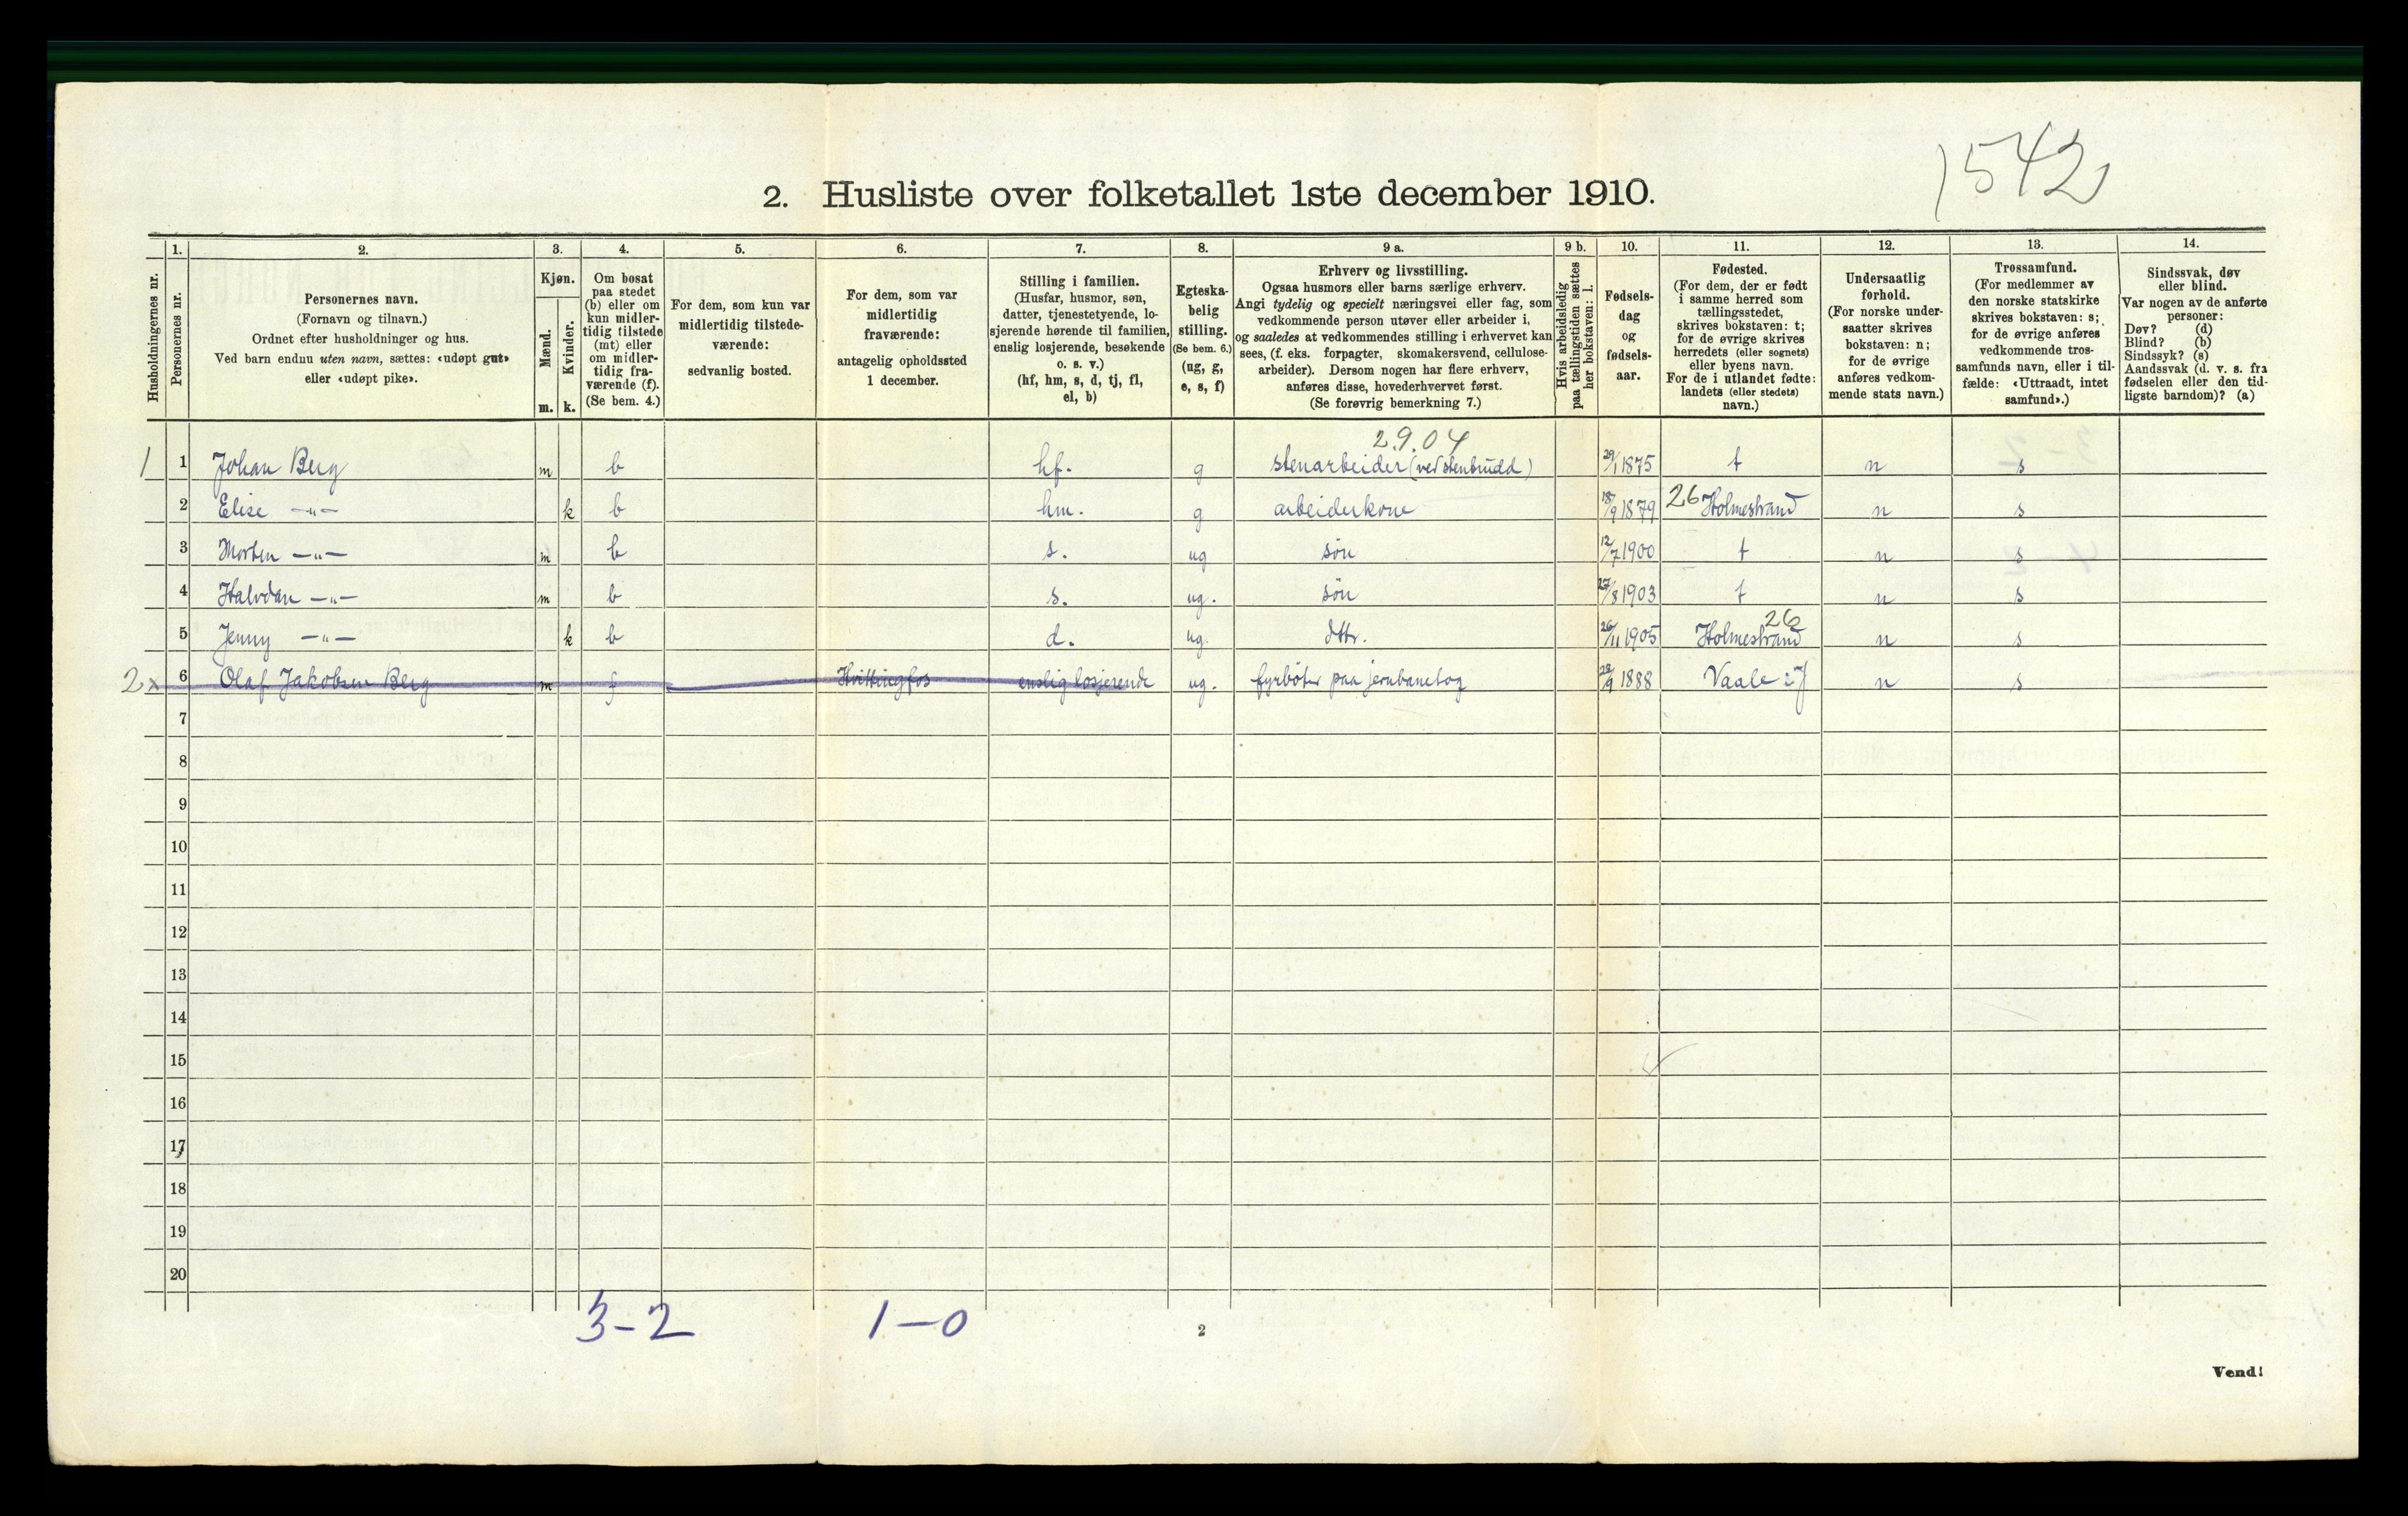 1542
2. Husliste over folketallet 1ste december 1910.
Husholdningernes nr.
1.
Personernes nr.
2.
Personernes navn.
(Fornavn og tilnavn.)
Ordnet efter husholdninger og hus.
Ved barn endnu uten navn, sættes: «udøpt gut»
eller «udøpt pike».
3.
Kjøn.
Mænd.
m.
Kvinder.
k.
4.
Om bosat
paa stedet
(b) eller om
kun midler-
tidig tilstede
(mt) eller
om midler-
tidig fra-
værende (f).
(Se bem. 4.)
5.
For dem, som kun var
midlertidig tilstede-
værende:
sedvanlig bosted.
6.
For dem, som var
midlertidig
fraværende:
antagelig opholdssted
1 december.
7.
Stilling i familien.
(Husfar, husmor, søn,
datter, tjenestetyende, lo-
sjerende hørende til familien,
enslig losjerende, besøkende
o. s. v.)
(hf, hm, s, d, tj, fl,
el, b)
8.
Egteska-
belig
stilling.
(Se bem. 6.)
(ug, g,
e, s, f)
9 a.
Erhverv og livsstilling.
Ogsaa husmors eller barns særlige erhverv.
Angi tydelig og specielt næringsvei eller fag, som
vedkommende person utøver eller arbeider i,
og saaledes at vedkommendes stilling i erhvervet kan
sees, (f. eks. forpagter, skomakersvend, cellulose-
arbeider). Dersom nogen har flere erhverv,
anføres disse, hovederhvervet først.
(Se forøvrig bemerkning 7.)
9 b.
Hvis arbeidsledig
paa tællingstiden sættes
her bokstaven: l.
10.
Fødsels-
dag
og
fødsels-
aar.
11.
Fødested.
(For dem, der er født
i samme herred som
tællingsstedet,
skrives bokstaven: t;
for de øvrige skrives
herredets (eller sognets)
eller byens navn.
For de i utlandet fødte:
landets (eller stedets)
navn.)
12.
Undersaatlig
forhold.
(For norske under-
saatter skrives
bokstaven: n;
for de øvrige
anføres vedkom-
mende stats navn.)
13.
Trossamfund.
(For medlemmer av
den norske statskirke
skrives bokstaven: s;
for de øvrige anføres
vedkommende tros-
samfunds navn, eller i til-
fælde: «Uttraadt, intet
samfund».)
14.
Sindssvak, døv
eller blind.
Var nogen av de anførte
personer:
Døv? (d)
Blind? (b)
Sindssyk? (s)
Aandssvak (d. v. s. fra
fødselen eller den tid-
ligste barndom)? (a)
2.9.04
1 1 Johan Berg m b hf. g stenarbeider (ved stenbrudd) 29/1 1875 t n s
2 Elise -"- k b hm. g arbeiderkone 18/9 1879 26 Holmestrand n s
3 Morten -"- m b s. ug søn 12/7 1900 t n s
4 Halvdan -"- m b s. ug. søn 27/8 1903 t n s
26
5 Jenny -"- k b d. ug. dttr. 26/11 1905 Holmestrand n s
2 x 6 Olaf Jakobsen Berg m f Hvittingfos enslig losjerende ug. fyrbøter paa jernbanetog 1888 Vaale n s
7
8
9
10
11
12
13
14
15
16
17
18
19
20
3-2 1-0
2
Vend!